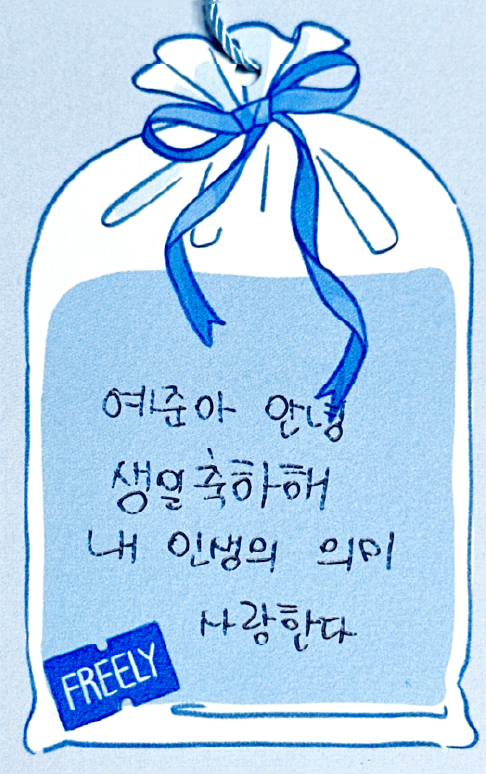 예준아 안녕
생일축하해
내 인생의 의미
사랑한다
FREELY